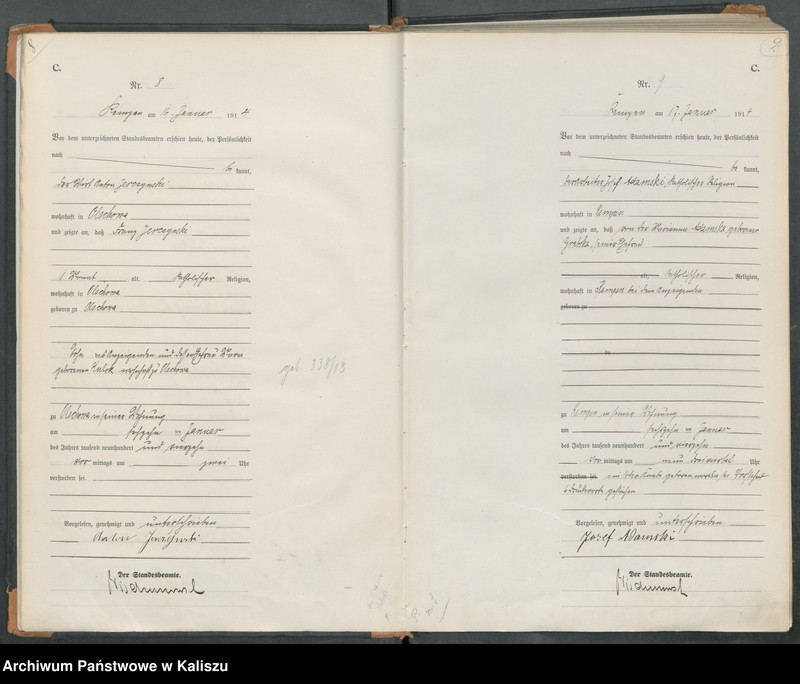 8
C.
Nr. 8
Kempen am 16. Januar 1914
Vor dem unterzeichneten Standesbeamten erschien heute, der Persönlichkeit
nach
be kannt,
der Anton
wohnhaft in Olschowa
und zeigte an, daß Franz
1 Monat alt, katholischer Religion,
wohnhaft in Olschowa
geboren zu Olschowa
Sohn des Anzeigenden und dessen Ehefrau
geborenen wohnhaft zu Olschowa
geb 338/13
zu Olschowa in seiner Wohnung
am sechzehn ten Januar
des Jahres tausend neunhundert und vierzehn
vor mittags um zwei Uhr
verstorben sei.
Vorgelesen, genehmigt und unterschrieben
Anton
Der Standesbeamte.
9
C.
Nr. 9
Kempen am 17. Januar 1914
Vor dem unterzeichneten Standesbeamten erschien heute, der Persönlichkeit
nach
be kannt,
der Arbeiter Josef Adamski, katholischer Religion
wohnhaft in Kempen
und zeigte an, daß von der Marianna Adamska geborenen
seiner Ehefrau
alt, katholischer Religion,
wohnhaft in Kempen bei dem Anzeigenden
geboren zu
de
zu Kempen in seiner Wohnung
am sechzehn ten Januar
des Jahres tausend neunhundert und vierzehn
vor mittags um neun dreiviertel Uhr
verstorben sei. ein Knabe geboren worden sei
Vorgelesen, genehmigt und unterschrieben
Józef Adamski
Der Standesbeamte.
Archiwum Państwowe w Kaliszu